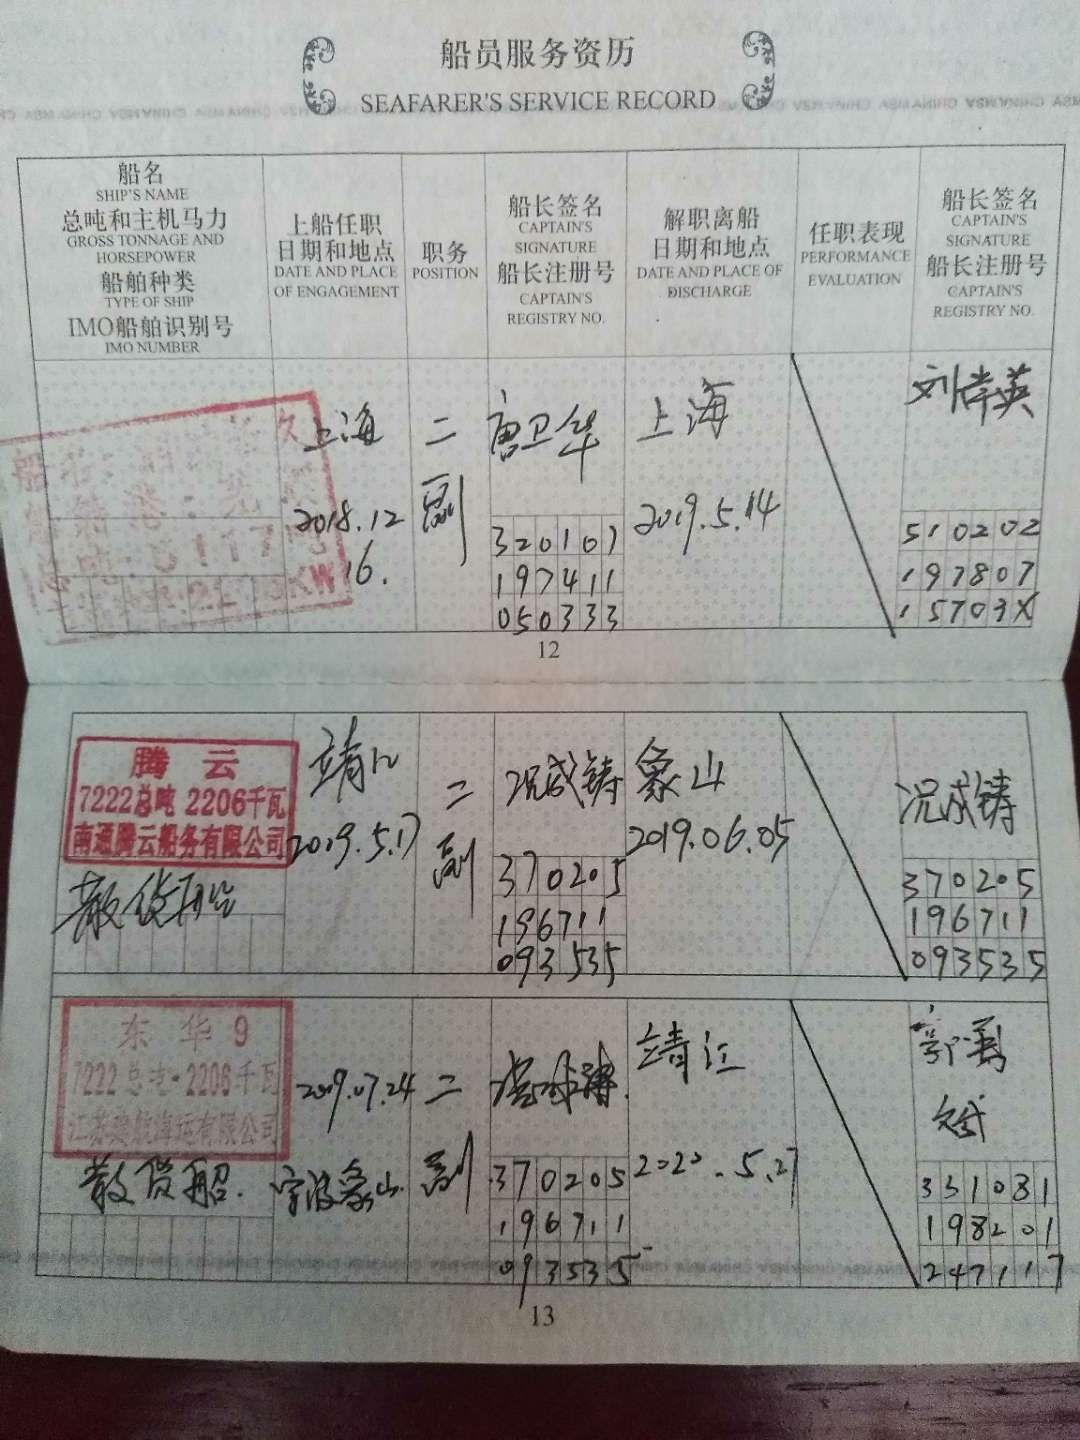 船员服务资历
SEAFARER'S SERVICE RECORD
船名
SHIP'S NAME
总吨和主机马力
GROSS TONNAGE AND
HORSEPOWER
船舶种类
TYPE OF SHIP
IMO船舶识别号
IMO NUMBER
上船任职
日期和地点
DATE AND PLACE
OF ENGAGEMENT
职务
POSITION
船长签名
CAPTAIN'S
SIGNATURE
船长注册号
CAPTAIN'S
REGISTRY NO.
解职离船
日期和地点
DATE AND PLACE OF
DISCHARGE
任职表现
PERFORMANCE
EVALUATION
船长签名
CAPTAIN'S
SIGNATURE
船长注册号
CAPTAIN'S
REGISTRY NO.
上海
2018.12
16.
二
副
唐卫华
320107
197411
050333
上海
2019.5.14
510202
197807
15703X
12
腾云
7222总吨 2206千瓦
南通腾云船务有限公司
散货船
靖江
2019.5.17
二
副
况成铸
370205
196711
093535
象山
2019.06.05
况成铸
370205
196711
093535
东华9
7222总吨·2206千瓦
散货船.
2019.07.24
宁波象山.
二
副
370205
196711
093535
靖江
2020.5.27
331081
198201
247117
13